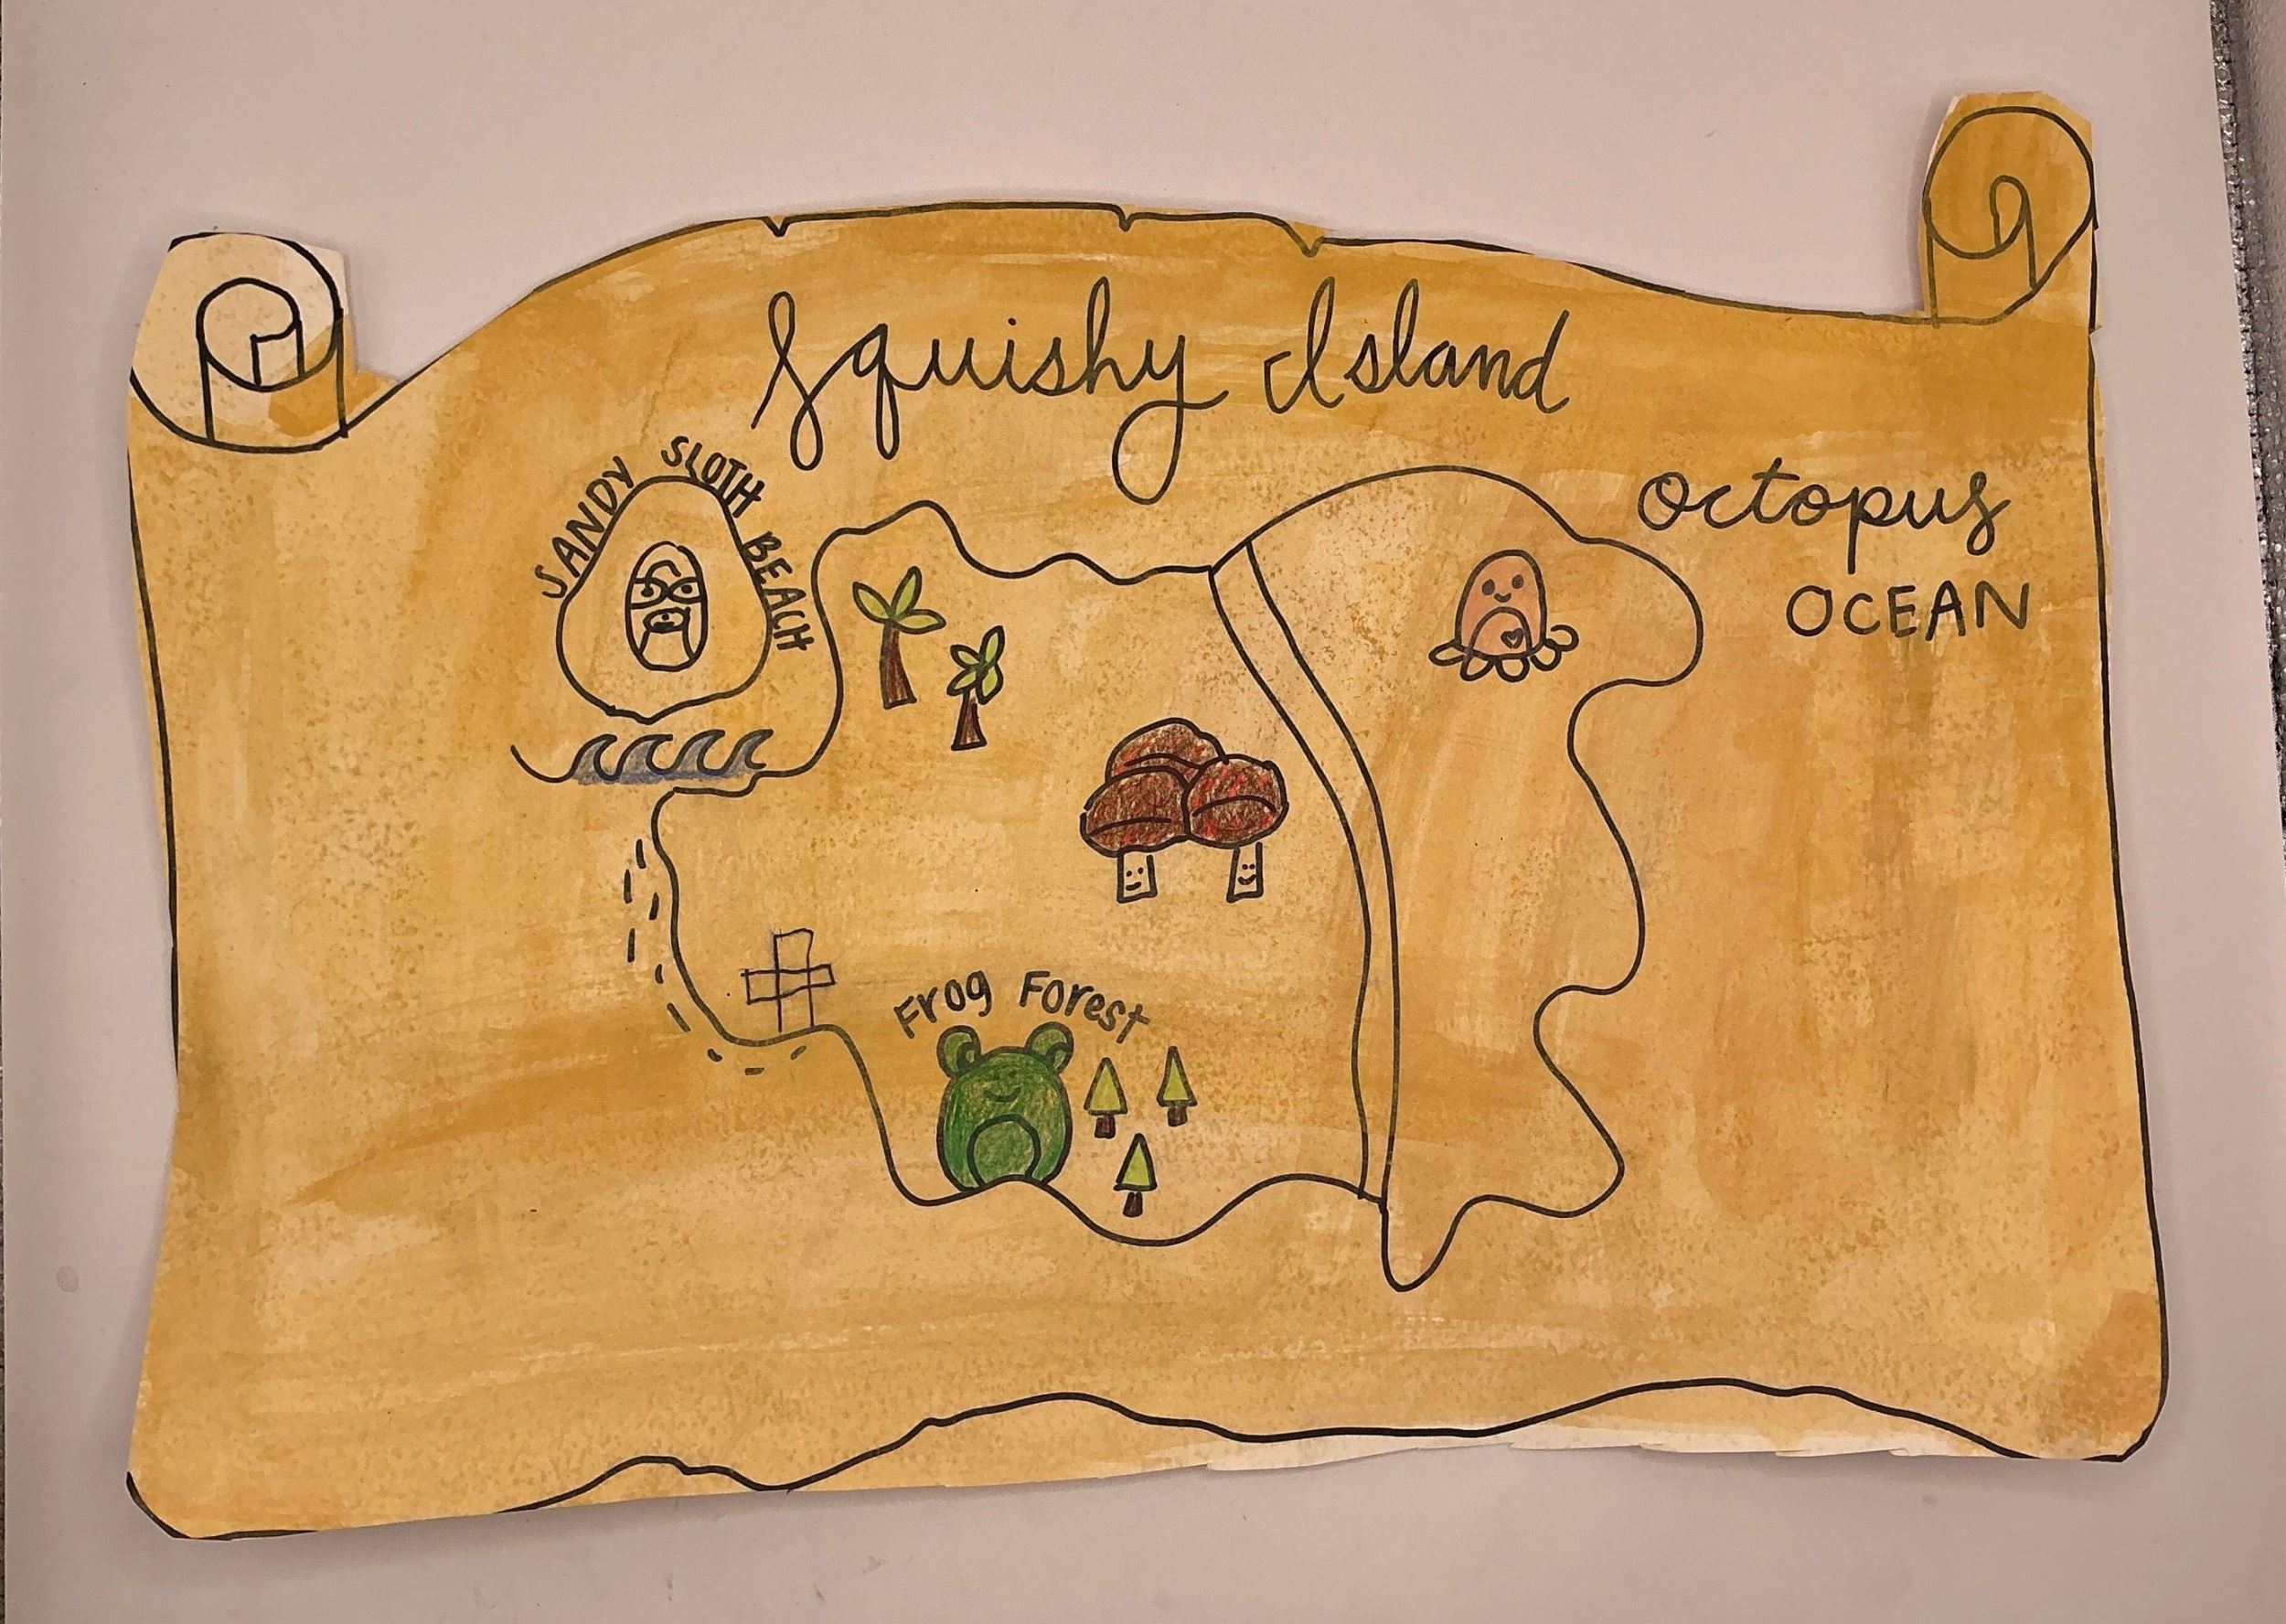 Squishy Island
SANDY SLOTH BEACH
Octopus
OCEAN
Frog Forest